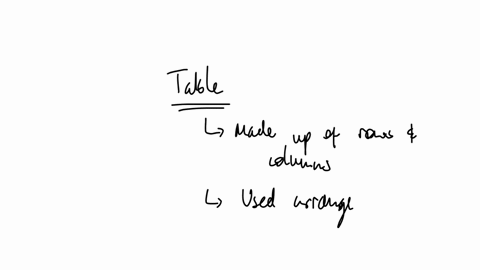 Table
↳ Made up of rows &
columns
↳ Used arrange